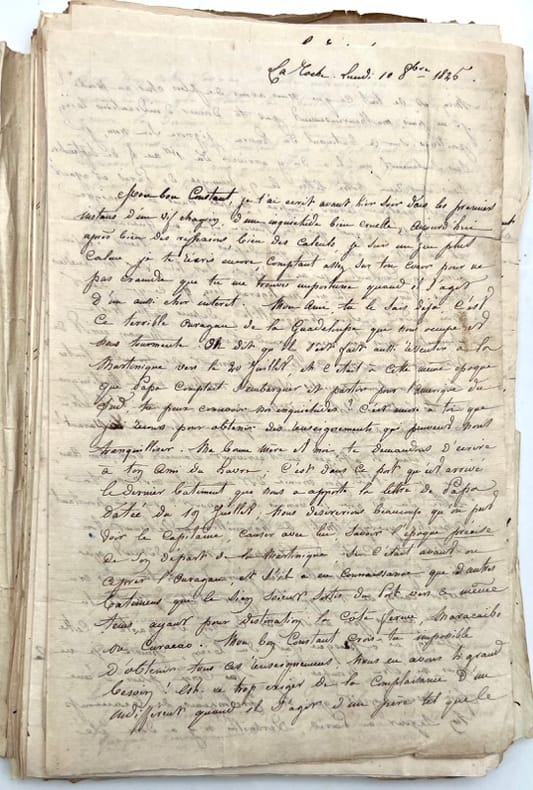 La Roche. Lundi 10 8bre 1825.
Mon bon Constant, je t'ai ecrit avant hier soir dans les premiers
instans d'un vif chagrin, d'une inquietude bien cruelle, aujourd'hui
après bien des reflexions, bien des calculs je suis un peu plus
Calme je te écris encore comptant assez sur ton Coeur pour ne
pas craindre que tu me trouves importune quand il s'agit
d'un aussi cher interet. Mon Ami tu le sais déjà C'est
Ce terrible Ouragan de la Guadeloupe qui nous occupe et
nous tourmente On dit qu'il s'est fait aussi ressentir à la
Martinique vers le 20 Juillet et c'était à cette même époque
que Papa Comptait s'embarquer et partir pour l'amerique du
Sud, tu peux concevoir nos inquiétudes? C'est encore à toi que
j'ai recours pour obtenir des renseignements qui puissent nous
tranquilliser. Ma bonne mère et moi te demandons d'ecrire
à ton Ami du havre. C'est dans ce port qu'est arrivé
le dernier batiment qui nous a apporté la lettre de Papa
datée du 19 Juillet. Nous desirerions beaucoup qu'on put
voir le Capitaine, causer avec lui savoir l'époque précise
de son départ de la Martinique si c'était avant ou
après l'Ouragan, et s'il a eu connaissance que d'autres
batimens que le sien soient sortis du Port vers ce même
tems ayant pour destination la côte ferme, Maracaibo
ou Curacao. Mon bon Constant crois-tu impossible
d'obtenir tous ces renseignemens. Nous en avons si grand
besoin! Est-ce trop exiger de la Complaisance d'un
indifferent quand il s'agit d'un pere tel que le